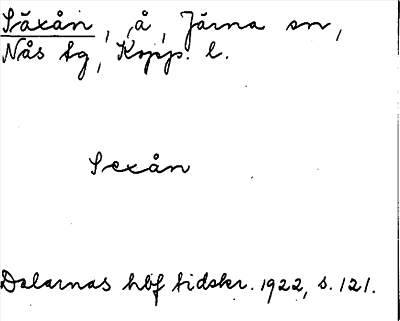 Säxån, å, Järna sn,
Nås tg, Kopp. l.
Sexån
Dalarnas hbf tidskr. 1922, s. 121.